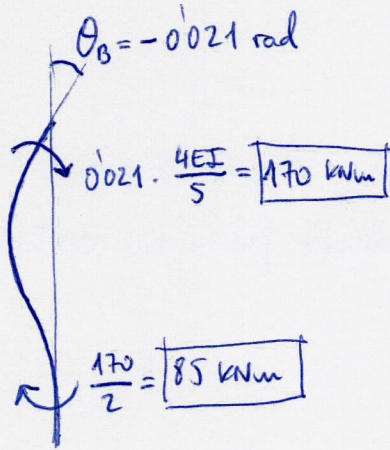 θB = -0'021 rad
0'021 · 4EI/5 = 170 kNm
170/2 = 85 kNm